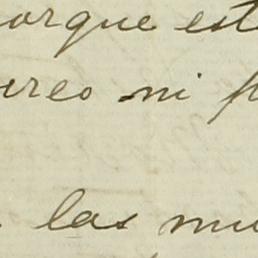 porque est
ureo ni p
las mu